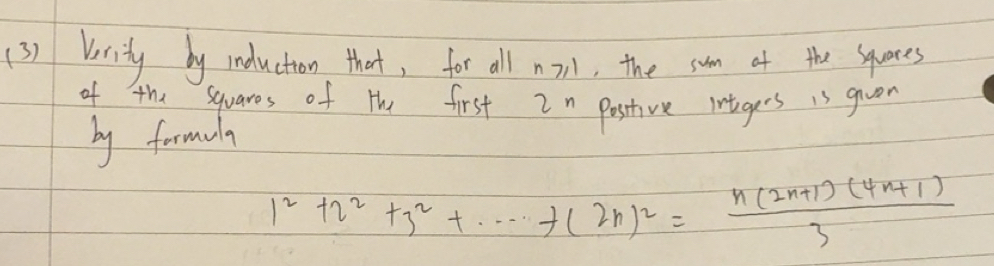 (3) Verify by induction that, for all n≥1, the sum of the squares
of the squares of the first 2n positive integers is given
by formula
1² + 2² + 3² + ..... + (2n)² = n(2n+1)(4n+1) / 3